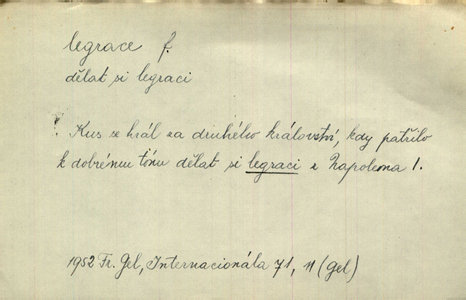 legrace f.
dělat si legraci
Kus se hrál za druhého království, kdy patřilo
k dobrému tónu dělat si legraci z Napoleona I.
1952 Fr. Gel, Internacionála 71, 11 (Gel)